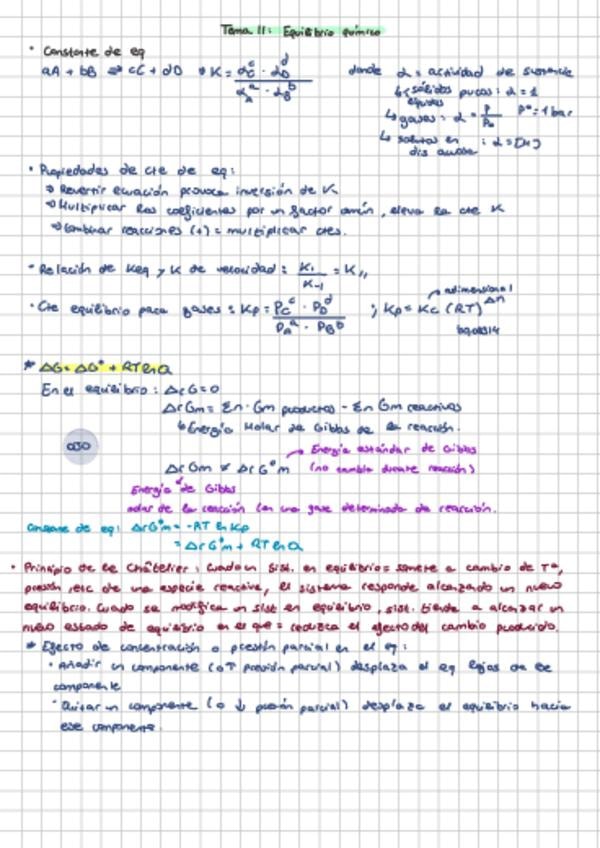 Tema 11: Equilibrio químico
• Constante de eq
aA + bB ⇌ cC + dD → K = α_C^c · α_D^d / α_A^a · α_B^b donde α = actividad de sustancia
↳ sólidos puros: α = 1
líquidos
↳ gases: α = P/P₀ P° = 1 bar
↳ solutos en : α = [M]
dis acuosa
• Propiedades de cte de eq:
→ Revertir ecuación provoca inversión de K
→ Multiplicar los coeficientes por un factor común, eleva la cte K
→ Combinar reacciones (+) = multiplicar ctes.
• Relación de Keq y K de velocidad: K₁/K₋₁ = K
• Cte equilibrio para gases: Kp = P_C^c · P_D^d / P_A^a · P_B^b ; Kp = Kc (RT)^Δn
adimensional
* ΔG = ΔG° + RT ln Q
En el equilibrio: ΔrG = 0
ΔrGm = Σn · Gm productos - Σn Gm reactivos
↳ Energía Molar de Gibbs de la reacción.
ojo
ΔrGm ≠ ΔrG°m
Energía estándar de Gibbs
(no cambia durante reacción)
Energía de Gibbs
molar de la reacción en una fase determinada de reacción.
Constante de eq: ΔrG°m = -RT ln Kp
= ΔrG°m + RT ln Q
• Principio de Le Châtelier: cuando un sist. en equilibrio se somete a cambio de Tª,
presión /etc de una especie reactiva, el sistema responde alcanzando un nuevo
equilibrio. Cuando se modifica un sist en equilibrio, sist. tiende a alcanzar un
nuevo estado de equilibrio en el que se reduzca el efecto del cambio producido.
* Efecto de concentración o presión parcial en el eq:
• Añadir un componente (o ↑ presión parcial) desplaza el eq lejos de ese
componente
• Quitar un componente (o ↓ presión parcial) desplaza el equilibrio hacia
ese componente.